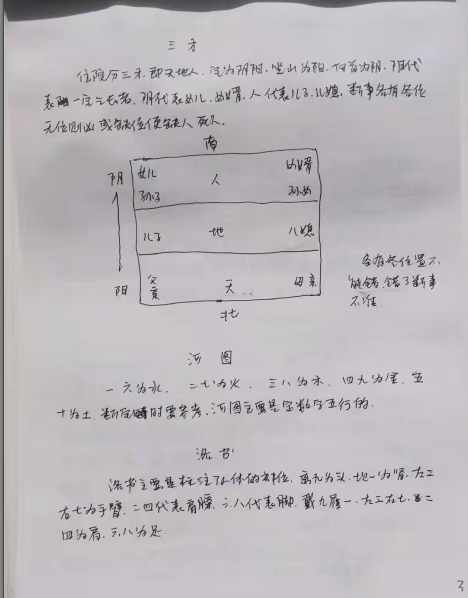 三才
住院分三才,即天地人,定为阴阳,坐山为阳,向首为阴,阳代
表一家之长者,阴代表女儿,女婿,人代表儿子,儿媳,断事各有各位
无位则凶或缺位便缺人死人。
南
阴
女儿
人
女婿
孙子
孙女
儿子
地
儿媳
阳
父亲
天
母亲
北
各有各位置不
能错,错了断事
不准
河图
一六为水,二七为火,三八为木,四九为金,五
十为土,断时要参考,河图主要是定数字五行的。
洛书
洛书主要是人体的部位,离九为头,坎一为肾,左三
右七为手臂,二四代表肩膀,六八代表脚,戴九履一,左三右七,二
四为肩,六八为足
3